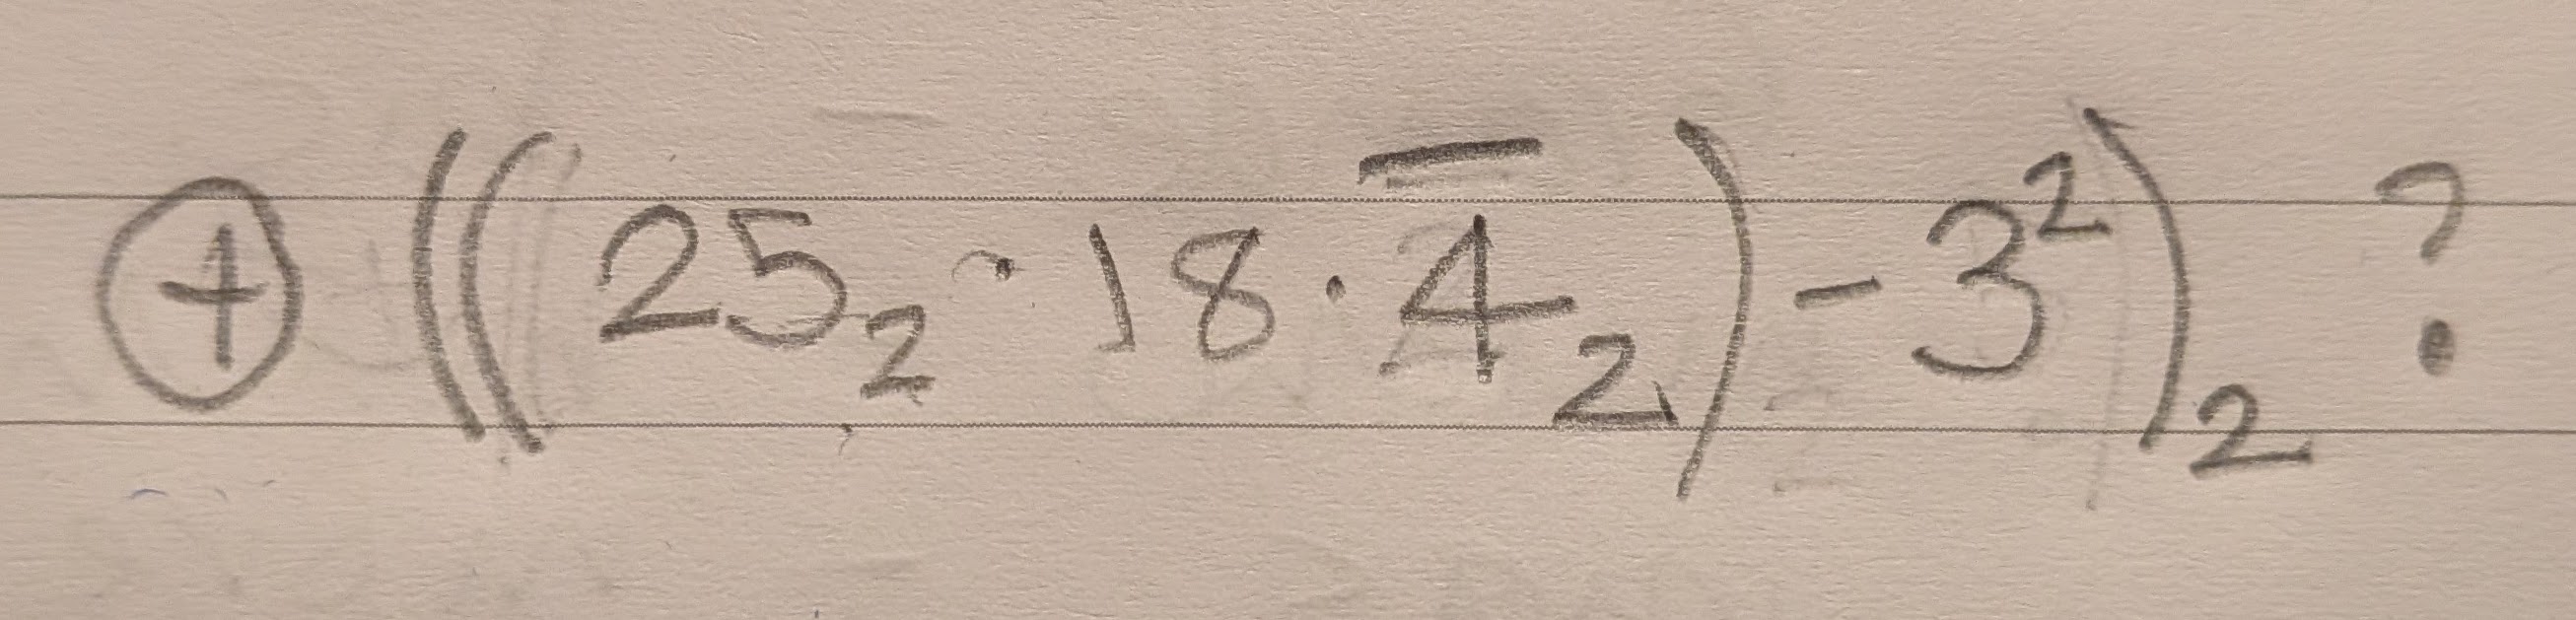 ⊕ ((25₂ · 18 · 4̅₂) - 3²)₂ ?